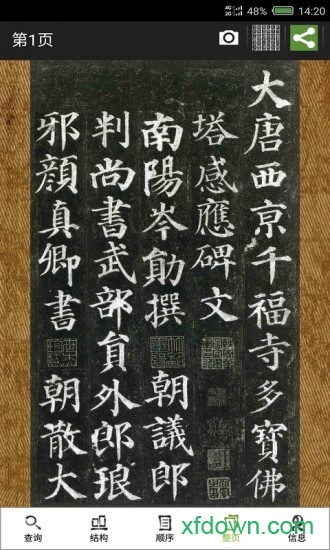 48% 14:20
第1页
大唐西京千福寺多寶佛
塔感應碑文
南陽岑勛撰 朝議郎
判尚書武部員外郎琅
邪顏真卿書 朝散大
查询 结构 顺序 整页 信息
xfdown.com